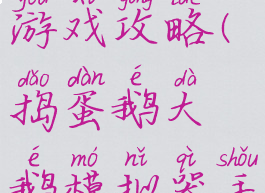 yóu xì gōng lüè
游戏攻略(
dǎo dàn é dà
捣蛋鹅大
é mó nǐ qì shǒu
鹅模拟器手